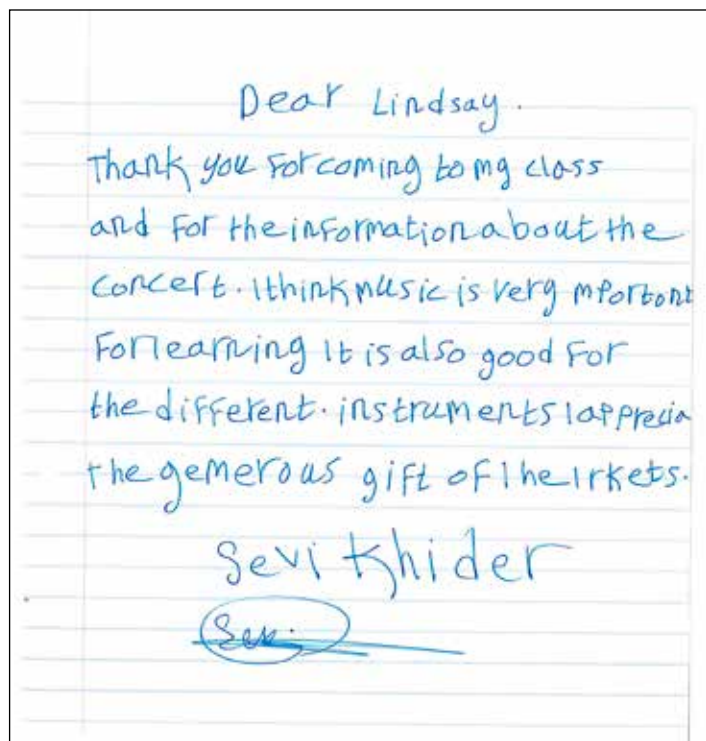 Dear Lindsay.
Thank you for coming to my class
and for the information about the
concert. I think music is very mportant
For learning It is also good For
the different. instruments I apprecia
the gemerous gift of the tickets.
Sevi Khider
Sev.